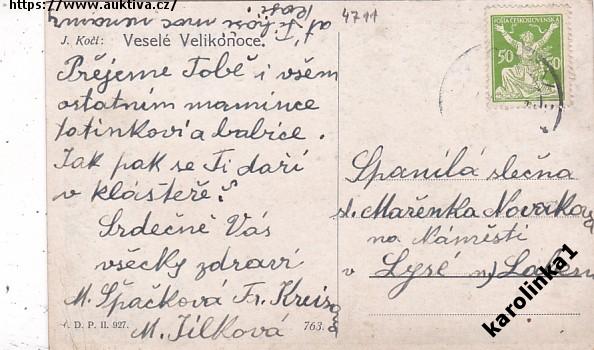 https://www.auktiva.cz/
4711
J. Kočí: Veselé Velikonoce.
Přejeme Tobě i všem
ostatním mamince
tatínkovi a babice.
Jak pak se Ti daří
v klášteře?
Srdečně Vás
všecky zdraví
M. Špačková Fr. Kreisa
M. Jílková
D. P. II. 927.
763.
POŠTA ČESKOSLOVENSKÁ
50 50
Spanilá slečna
sl. Mařenka Novákova
na Náměstí
v Lysé n/Labem
karolinka1